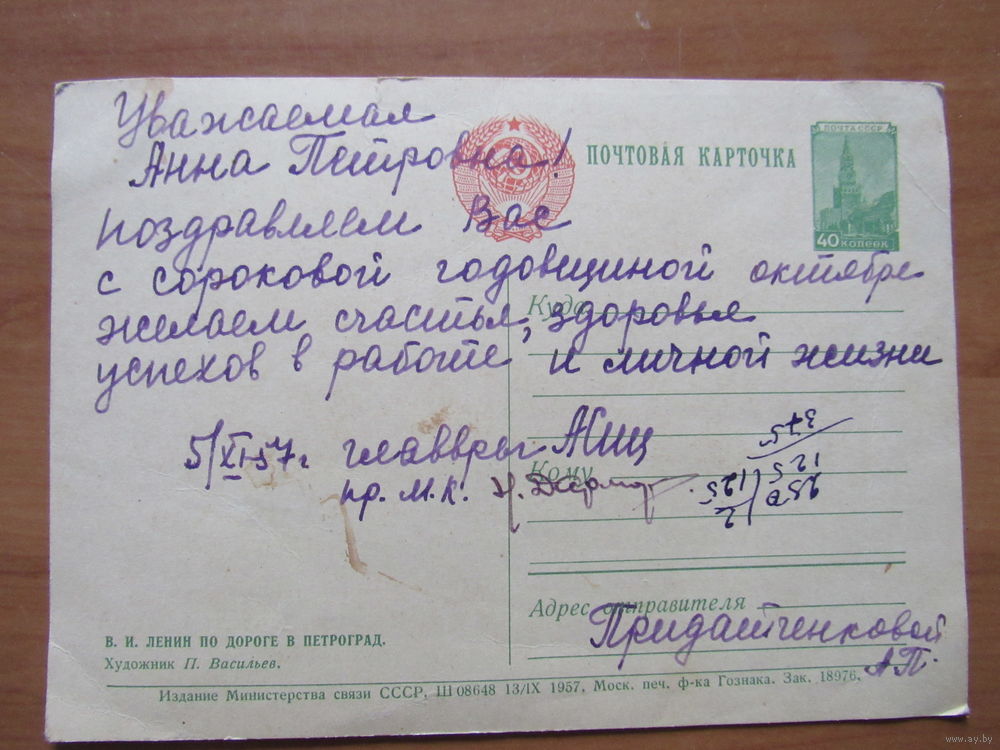 Уважаемая
Анна Петровна!
ПОЧТОВАЯ КАРТОЧКА
ПОЧТА СССР
40 КОПЕЕК
поздравляем Вас
с сороковой годовщиной октября
желаем счастья, здоровья
успехов в работе, и личной жизни
Куда
5/XI-57г. главврач
Кому
пр. м.к.
375
125
250
125
2
Адрес отправителя
Придатченковой
А.П.
В. И. ЛЕНИН ПО ДОРОГЕ В ПЕТРОГРАД.
Художник П. Васильев.
Издание Министерства связи СССР, Ш 08648 13/IX 1957, Моск. печ. ф-ка Гознака. Зак. 18976.
www.ay.by